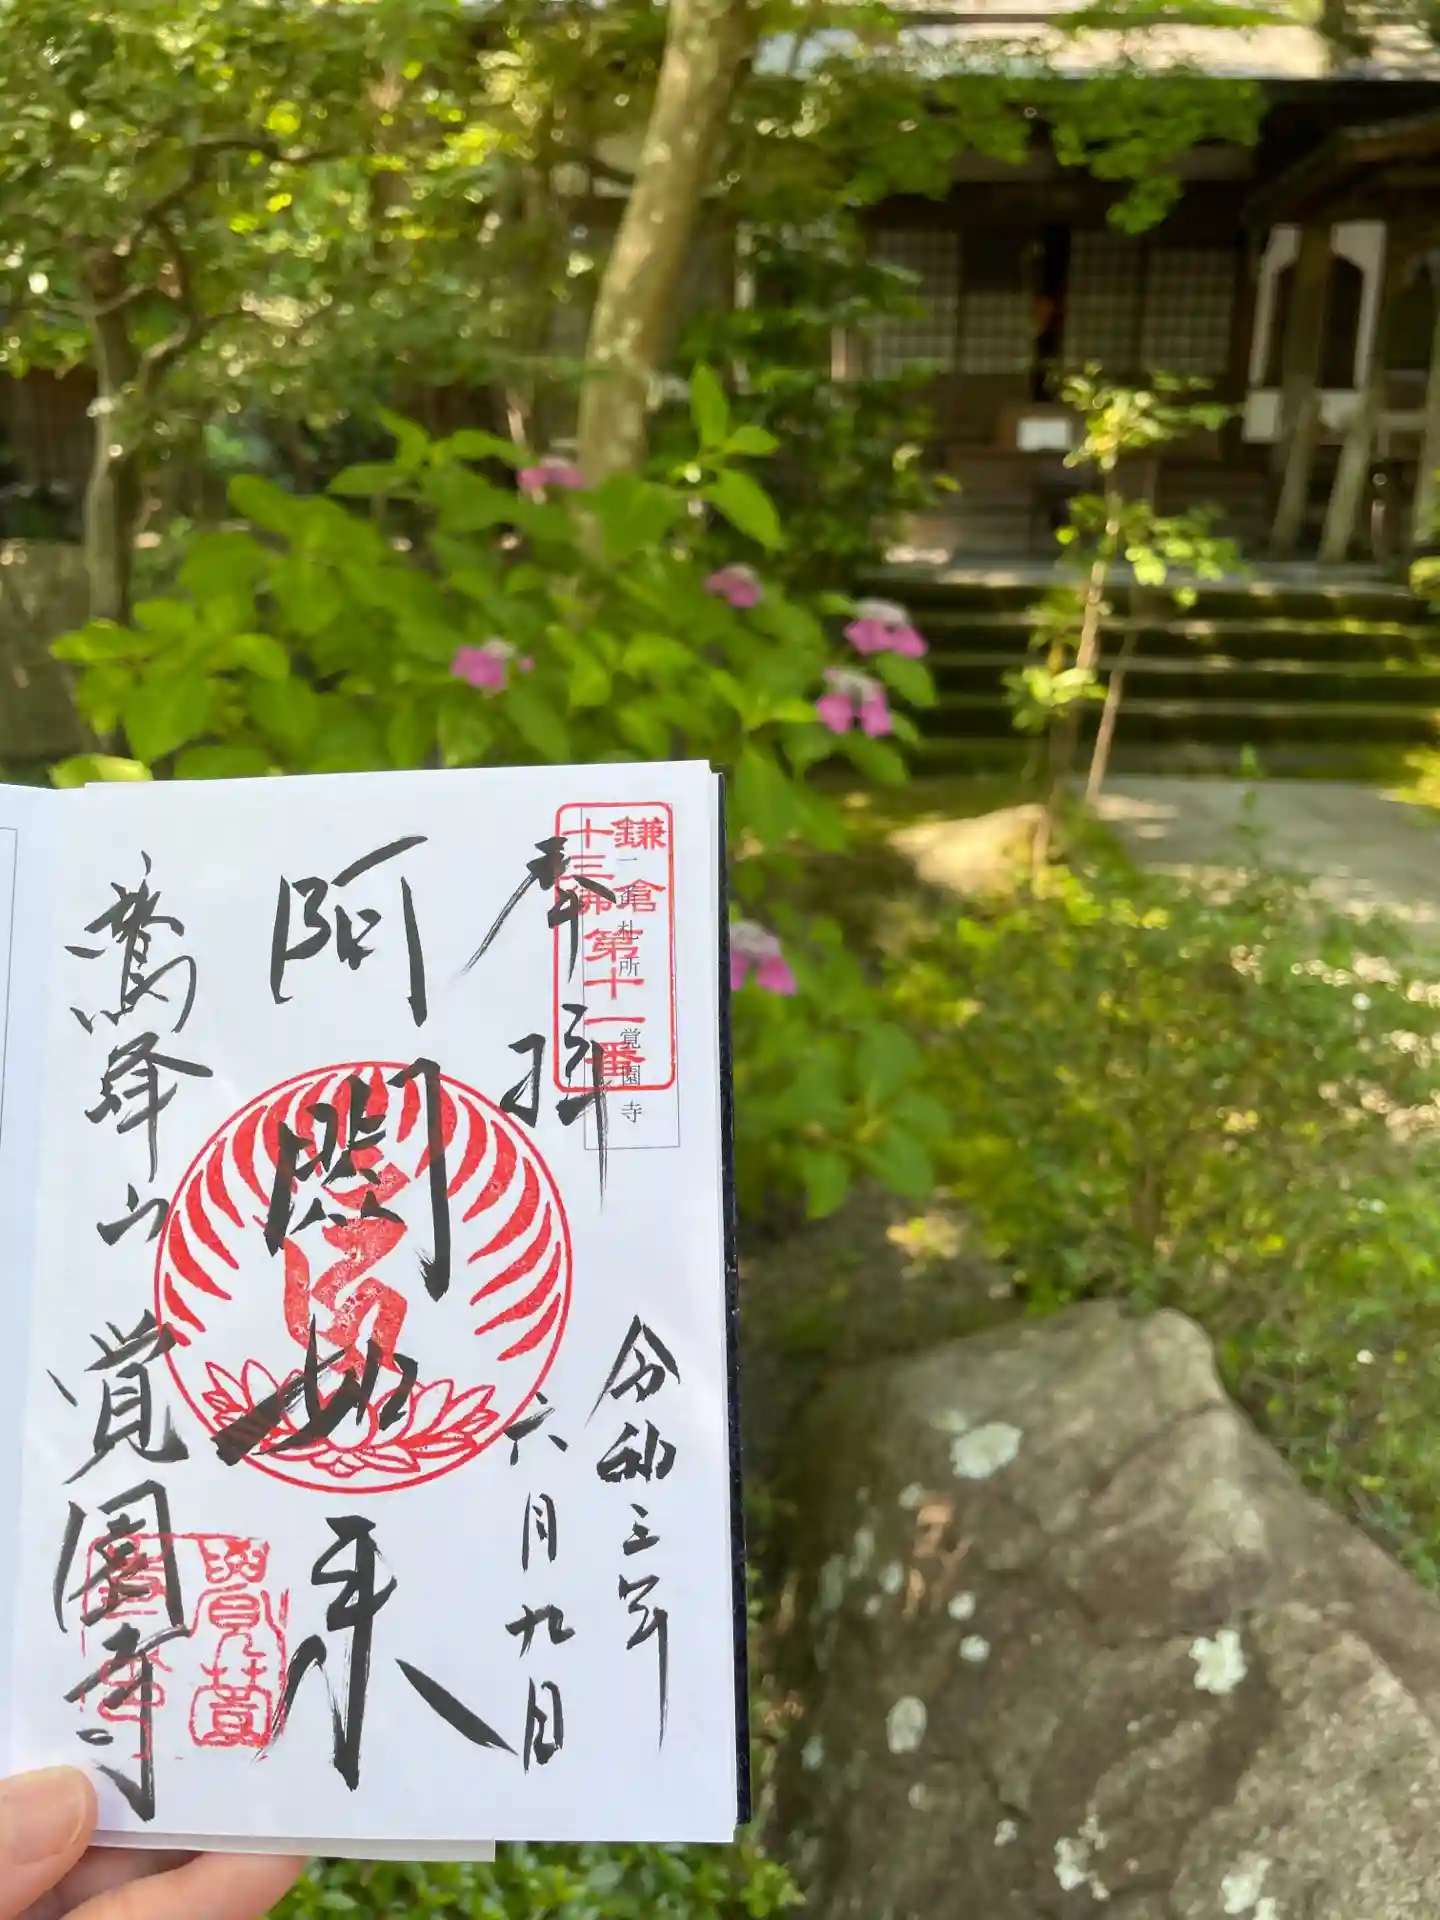 鎌倉
十三佛
第十一番
一
札所
覚園寺
奉拝
令和三年
六月九日
阿閦如来
鷲峰山
覚園寺